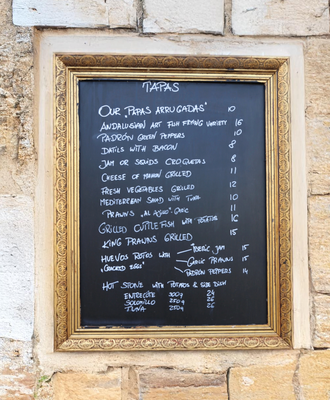 TAPAS
OUR "PAPAS ARRUGADAS" 10
ANDALUSIAN ART FISH FRYING VARIETY 16
PADRÓN GREEN PEPPERS 10
DATILS WITH BACON 8
JAM OR SQUIDS CROQUETAS 8
CHEESE OF MAHON GRILLED 11
FRESH VEGETABLES GRILLED 12
MEDITERREAN SALAD WITH TUNA 10
"PRAWNS "AL AJILLO" GARLIC 11
GRILLED CUTTLE FISH WITH POTATOE 16
KING PRAWNS GRILLED 15
HUEVOS ROTOS WITH "IBERIC JAM 15
"CRACKED EGGS" GARLIC PRAWNS 15
PADRON PEPPERS 14
HOT STONE WITH POTATO & SIDE DISH
ENTRECÔTE 300g 24
SOLOMILLO 250g 26
TUNA 250g 26